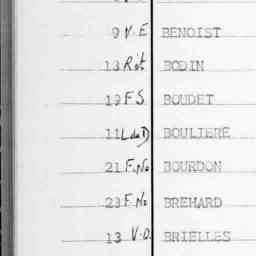 9 V.E BENOIST
13 Rit BODIN
19 F S BOUDET
11 L du D BOULIERE
21 F. No BOURDON
23 F. No BREHARD
13 V.O. BRIELLES